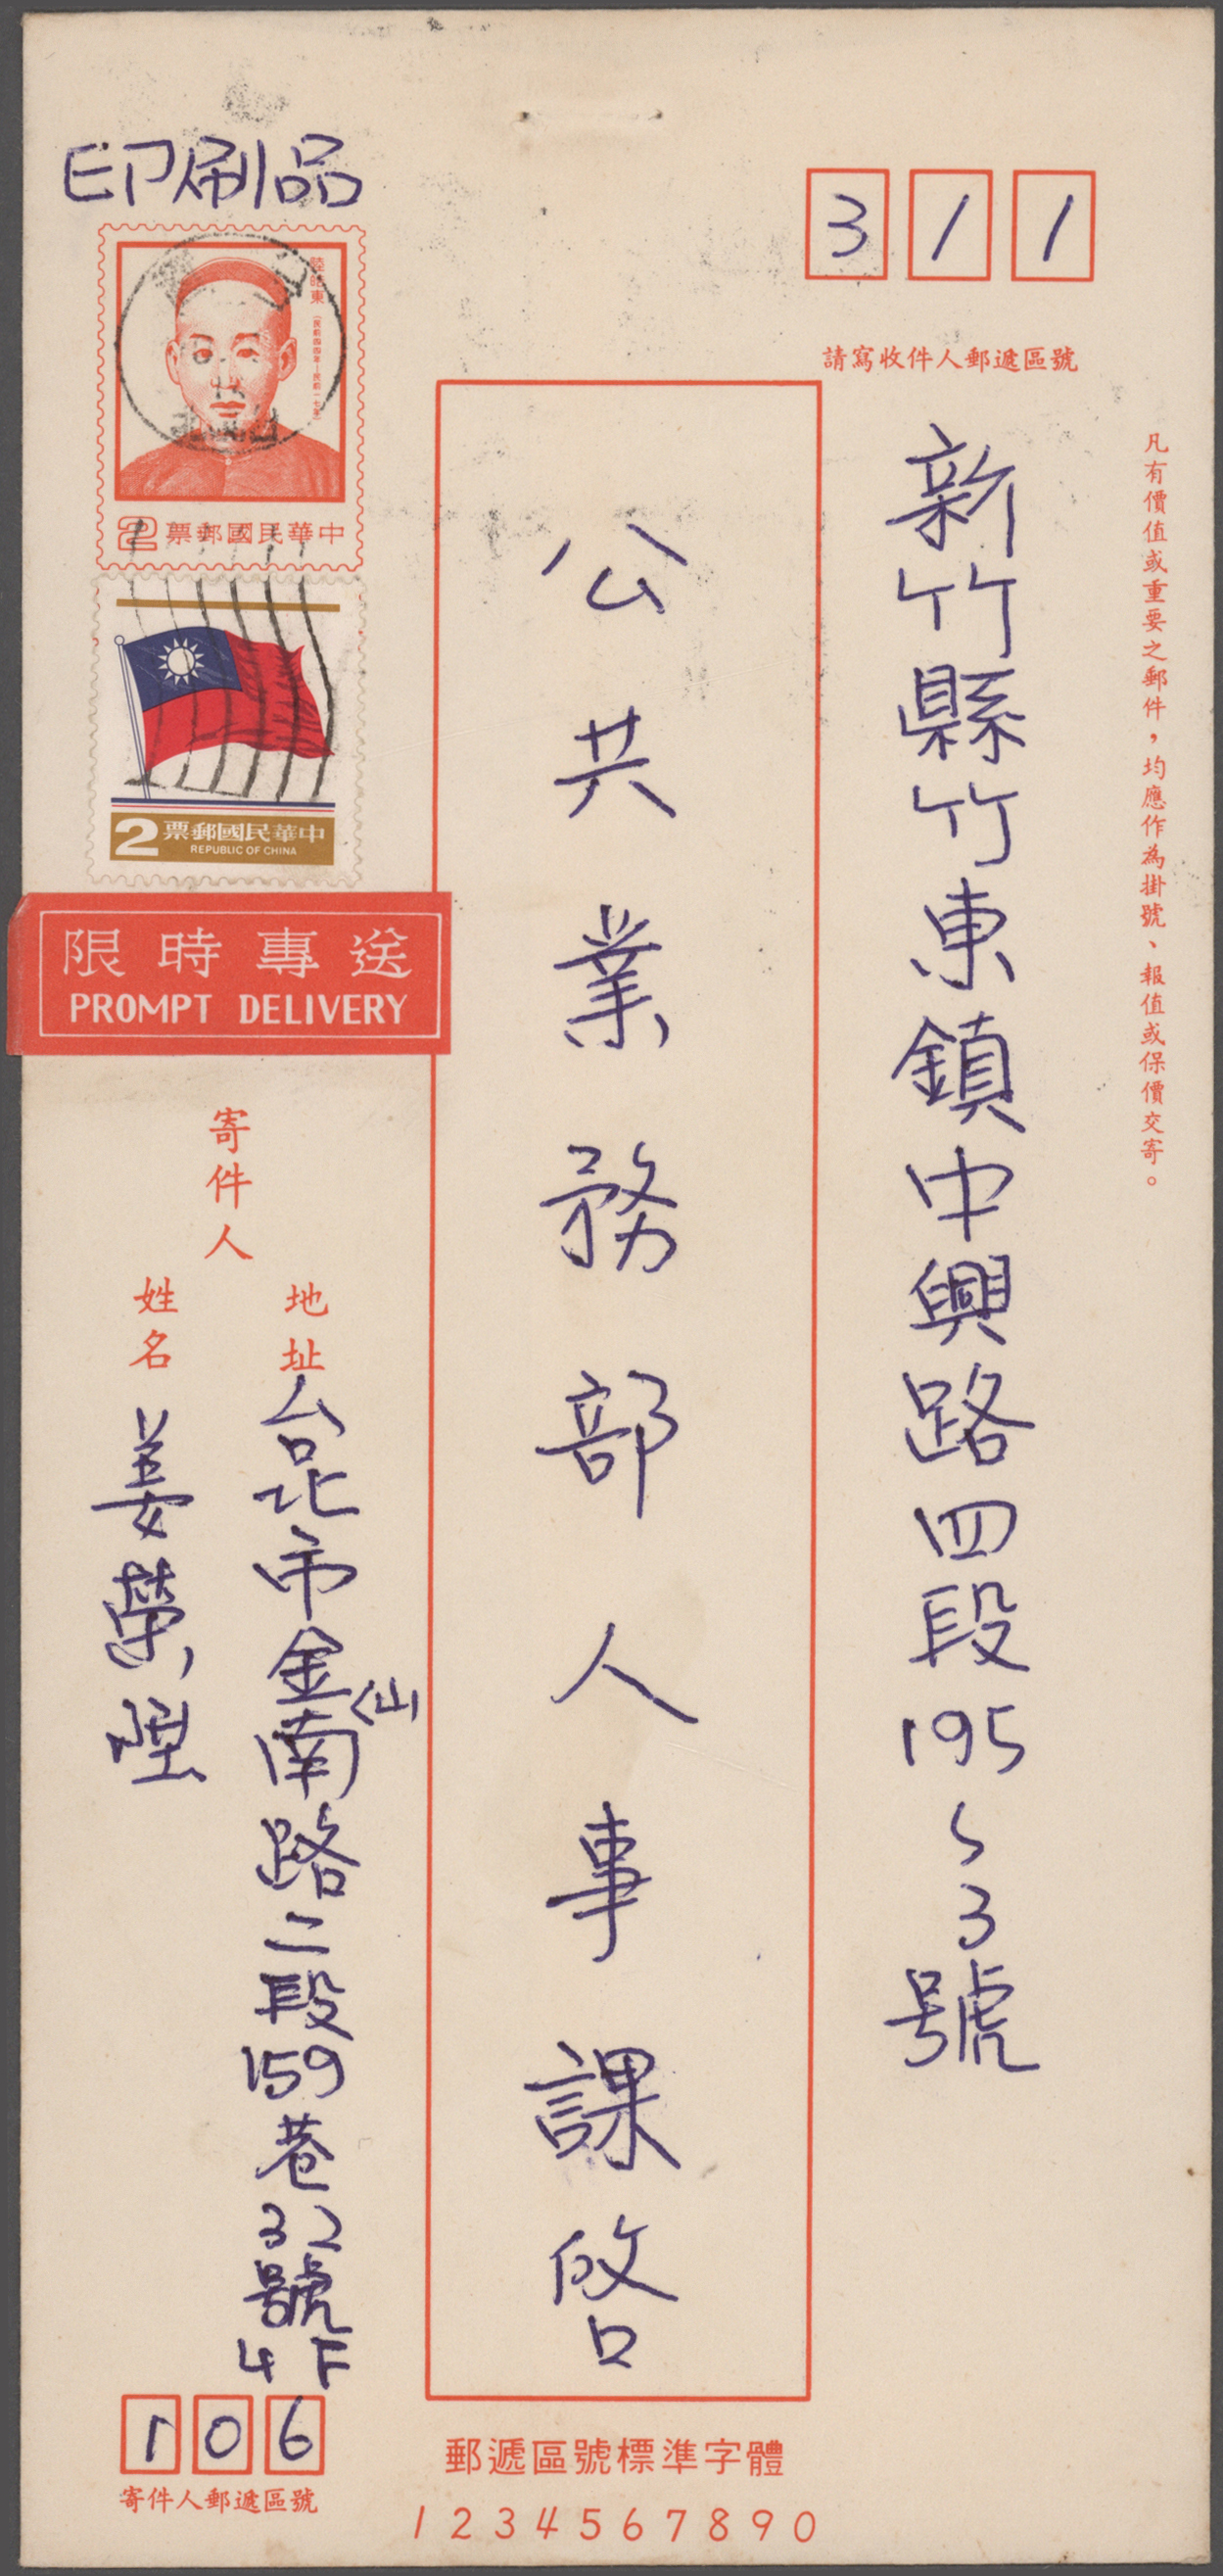 印刷品
311
請寫收件人郵遞區號
凡有價值或重要之郵件，均應作為掛號、報值或保價交寄。
新竹縣竹東鎮中興路四段195~3號
公共業務部人事課啓
陸皓東
中華民國郵票
2
中華民國郵票
REPUBLIC OF CHINA
2
限時專送
PROMPT DELIVERY
寄件人
地址
台北市金山南路二段159巷32號4F
姓名
姜榮
106
寄件人郵遞區號
郵遞區號標準字體
1234567890